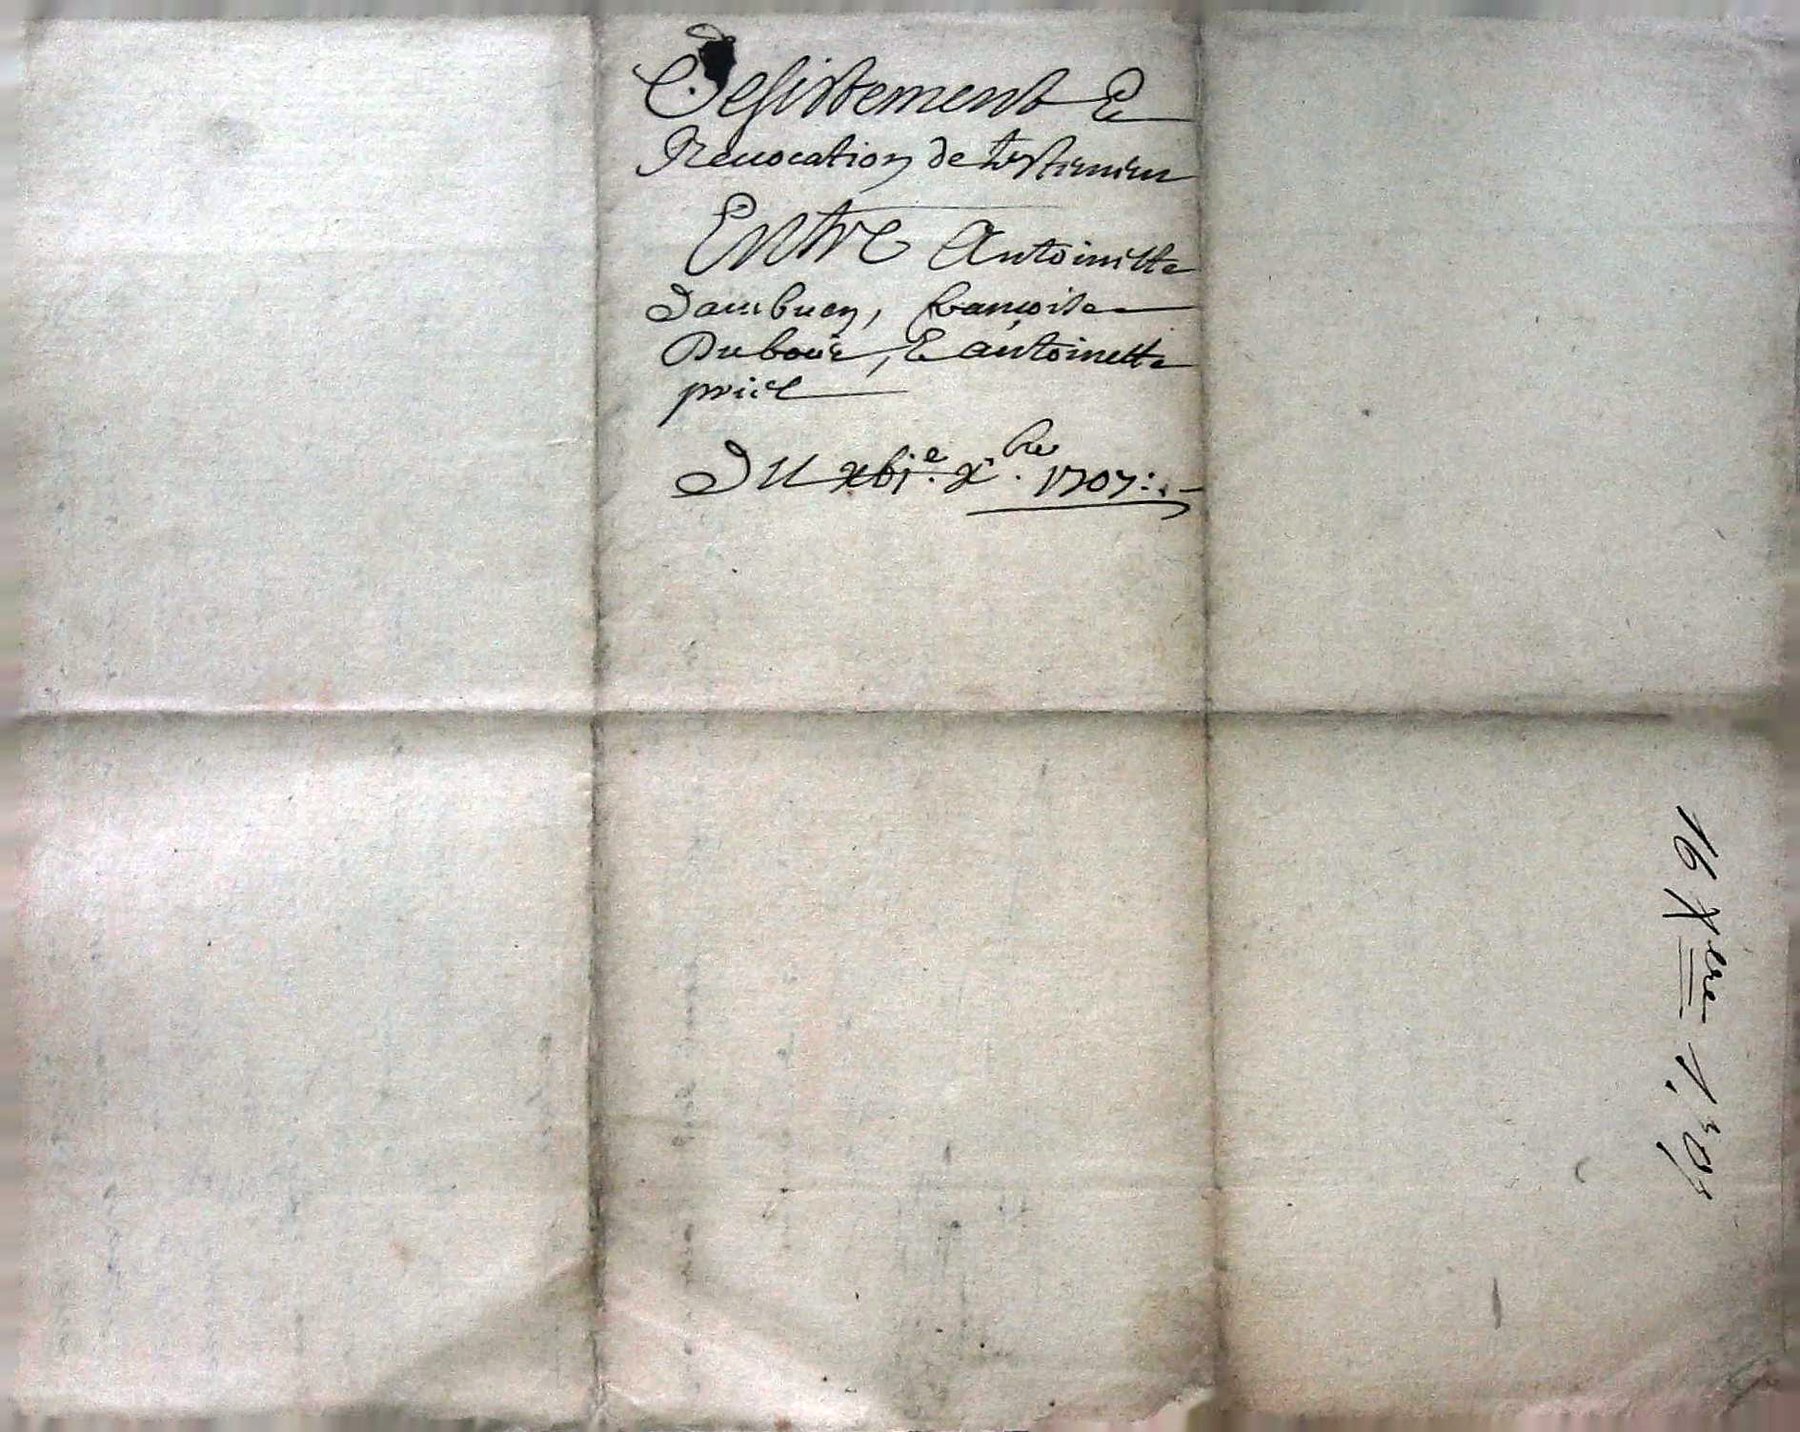 Desistement &
Revocation de testament
Entre Antoinette
Dambucy, françoise
Duboüe, & antoinette
priel
Du xbj.e x.bre 1707:.
16 Xbre 1,707